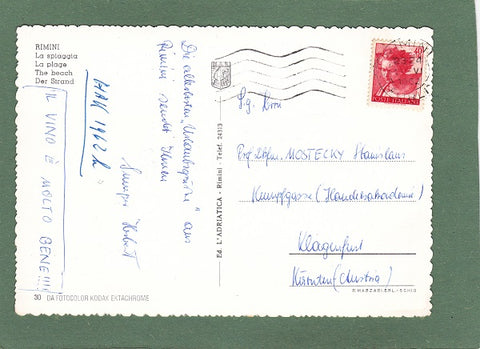 RIMINI
La spiaggia
La plage
The beach
Der Strand
Die allerbesten „Urlaubsgrüße“ aus
Rimini sendet Ihnen
Herbert
HAK 1962
IL VINO È MOLTO
BENE!!!!
30 DA FOTOCOLOR KODAK EKTACHROME
Ed. L'ADRIATICA - Rimini - Telef. 24313
S.g. Herrn
MOSTECKY Stanislaus
Kumpfgasse (Handelsakademie)
Klagenfurt
Kärnten (Austria)
40
POSTE ITALIANE